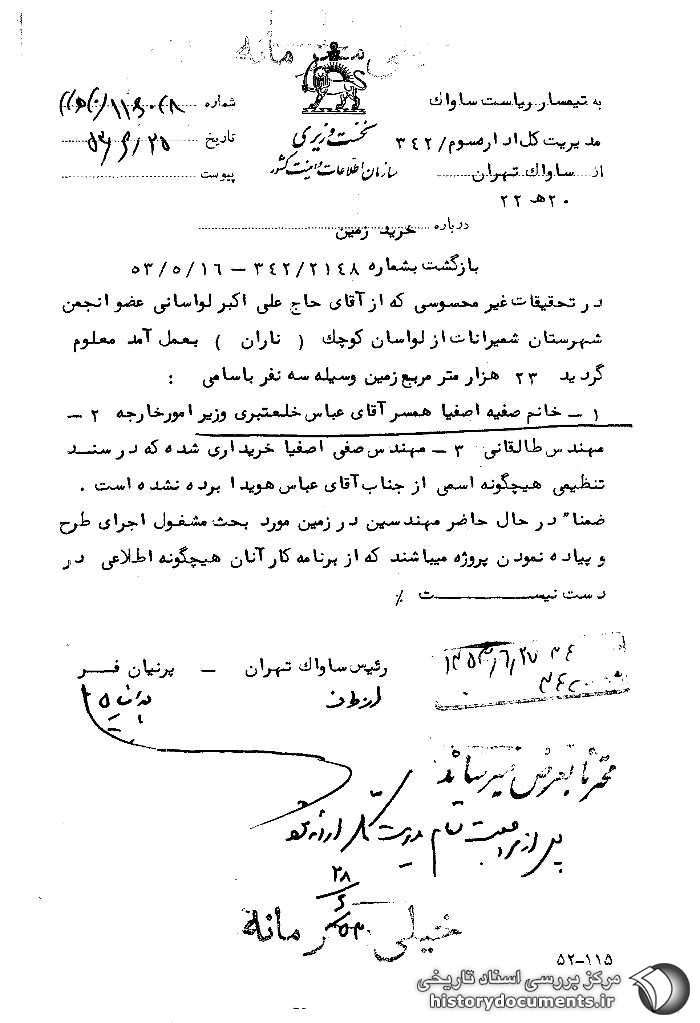 خیلی محرمانه
به تیمسار ریاست ساواك
شماره
مدیریت کل اداره سوم/ ۳۴۲
نخست وزیری
تاریخ ۵۳/۶/۲۵
از ساواك تهران
سازمان اطلاعات و امنیت کشور
پیوست
۲۰ ه‍ ۲۲
درباره خرید زمین
بازگشت بشماره ۳۴۲/۲۱۴۸ – ۵۳/۵/۱۶
در تحقیقات غیر محسوسی که از آقای حاج علی اکبر لواسانی عضو انجمن
شهرستان شمیرانات از لواسان کوچك ( ناران ) بعمل آمد معلوم
گردید ۲۳ هزار متر مربع زمین وسیله سه نفر باسامی :
۱ – خانم صفیه اصفیا همسر آقای عباس خلعتبری وزیر امور خارجه ۲ –
مهندس طالقانی ۳ – مهندس صفی اصفیا خریداری شده که در سند
تنظیمی هیچگونه اسمی از جناب آقای عباس هویدا برده نشده است .
ضمنا" در حال حاضر مهندسین در زمین مورد بحث مشغول اجرای طرح
و پیاده نمودن پروژه میباشند که از برنامه کار آنان هیچگونه اطلاعی در
دست نیست ٪
رئیس ساواك تهران – پرنیان فر
از طرف
۱۳۵۳/۶/۲۷
محترما بعرض میرساند
پس از
۲۸
۶
۵۳
خیلی محرمانه
۵۲-۱۱۵
مرکز بررسی اسناد تاریخی
historydocuments.ir